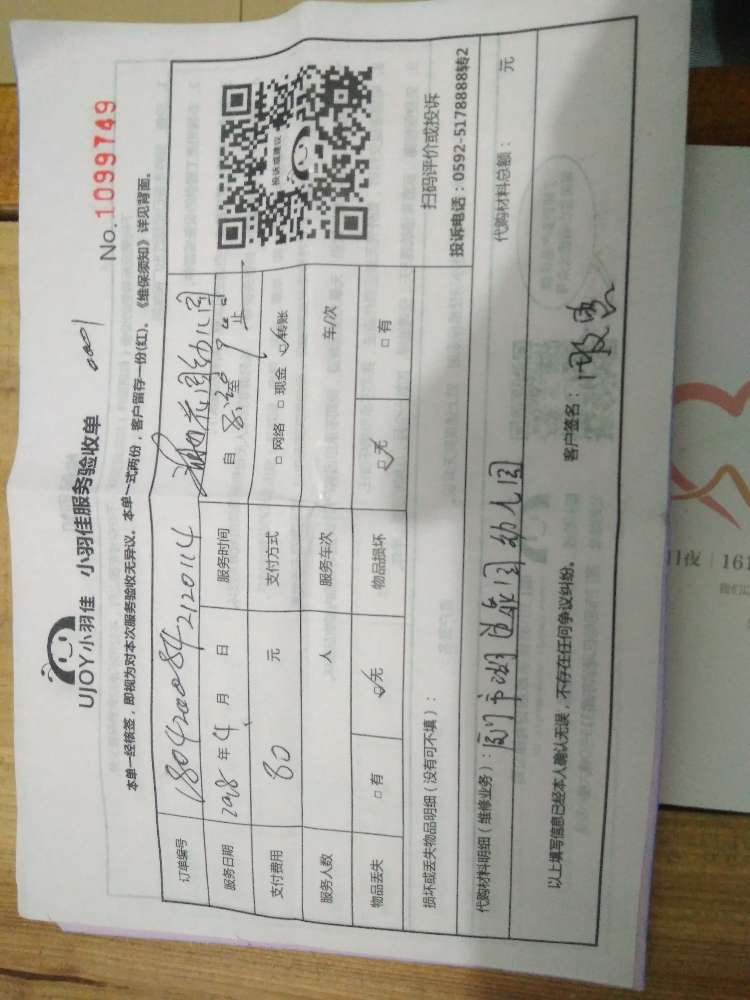 UJOY小羽佳 小羽佳服务验收单
No.1099749
本单一经核签，即视为对本次服务验收无异议。本单一式两份，客户留存一份(红)。《维保须知》详见背面。
订单编号 1804200842120114 花园幼儿园
服务日期 2018年4月 日 服务时间 自 8:30 至 9 止
支付费用 80 元 支付方式 □网络 □现金 ☑转账
服务人数 人 服务车次 车/次
物品丢失 □有 ☑无 物品损坏 ☑无 □有
投诉或建议
扫码评价或投诉
投诉电话：0592-5178888转2
损坏或丢失物品明细（没有可不填）：
代购材料明细（维修业务）：厦门市湖 幼儿园 代购材料总额： 元
以上填写信息已经本人确认无误，不存在任何争议纠纷。 客户签名：
日夜 161